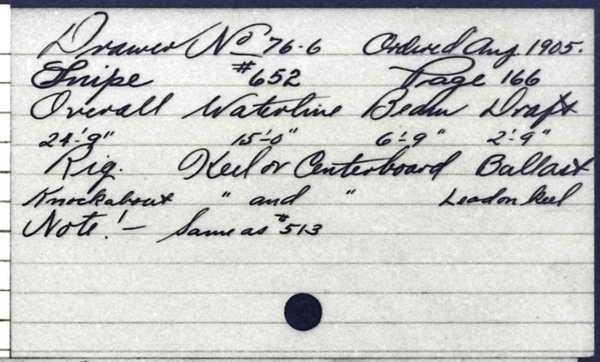 Drawer No 76-6 Ordered Aug 1905.
Snipe #652 Page 166
Overall Waterline Beam Draft
24'-9" 15'-0" 6'-9" 2'-9"
Rig. Keel or Centerboard Ballast
Knockabout " and " Lead on keel
Note!- Same as #513